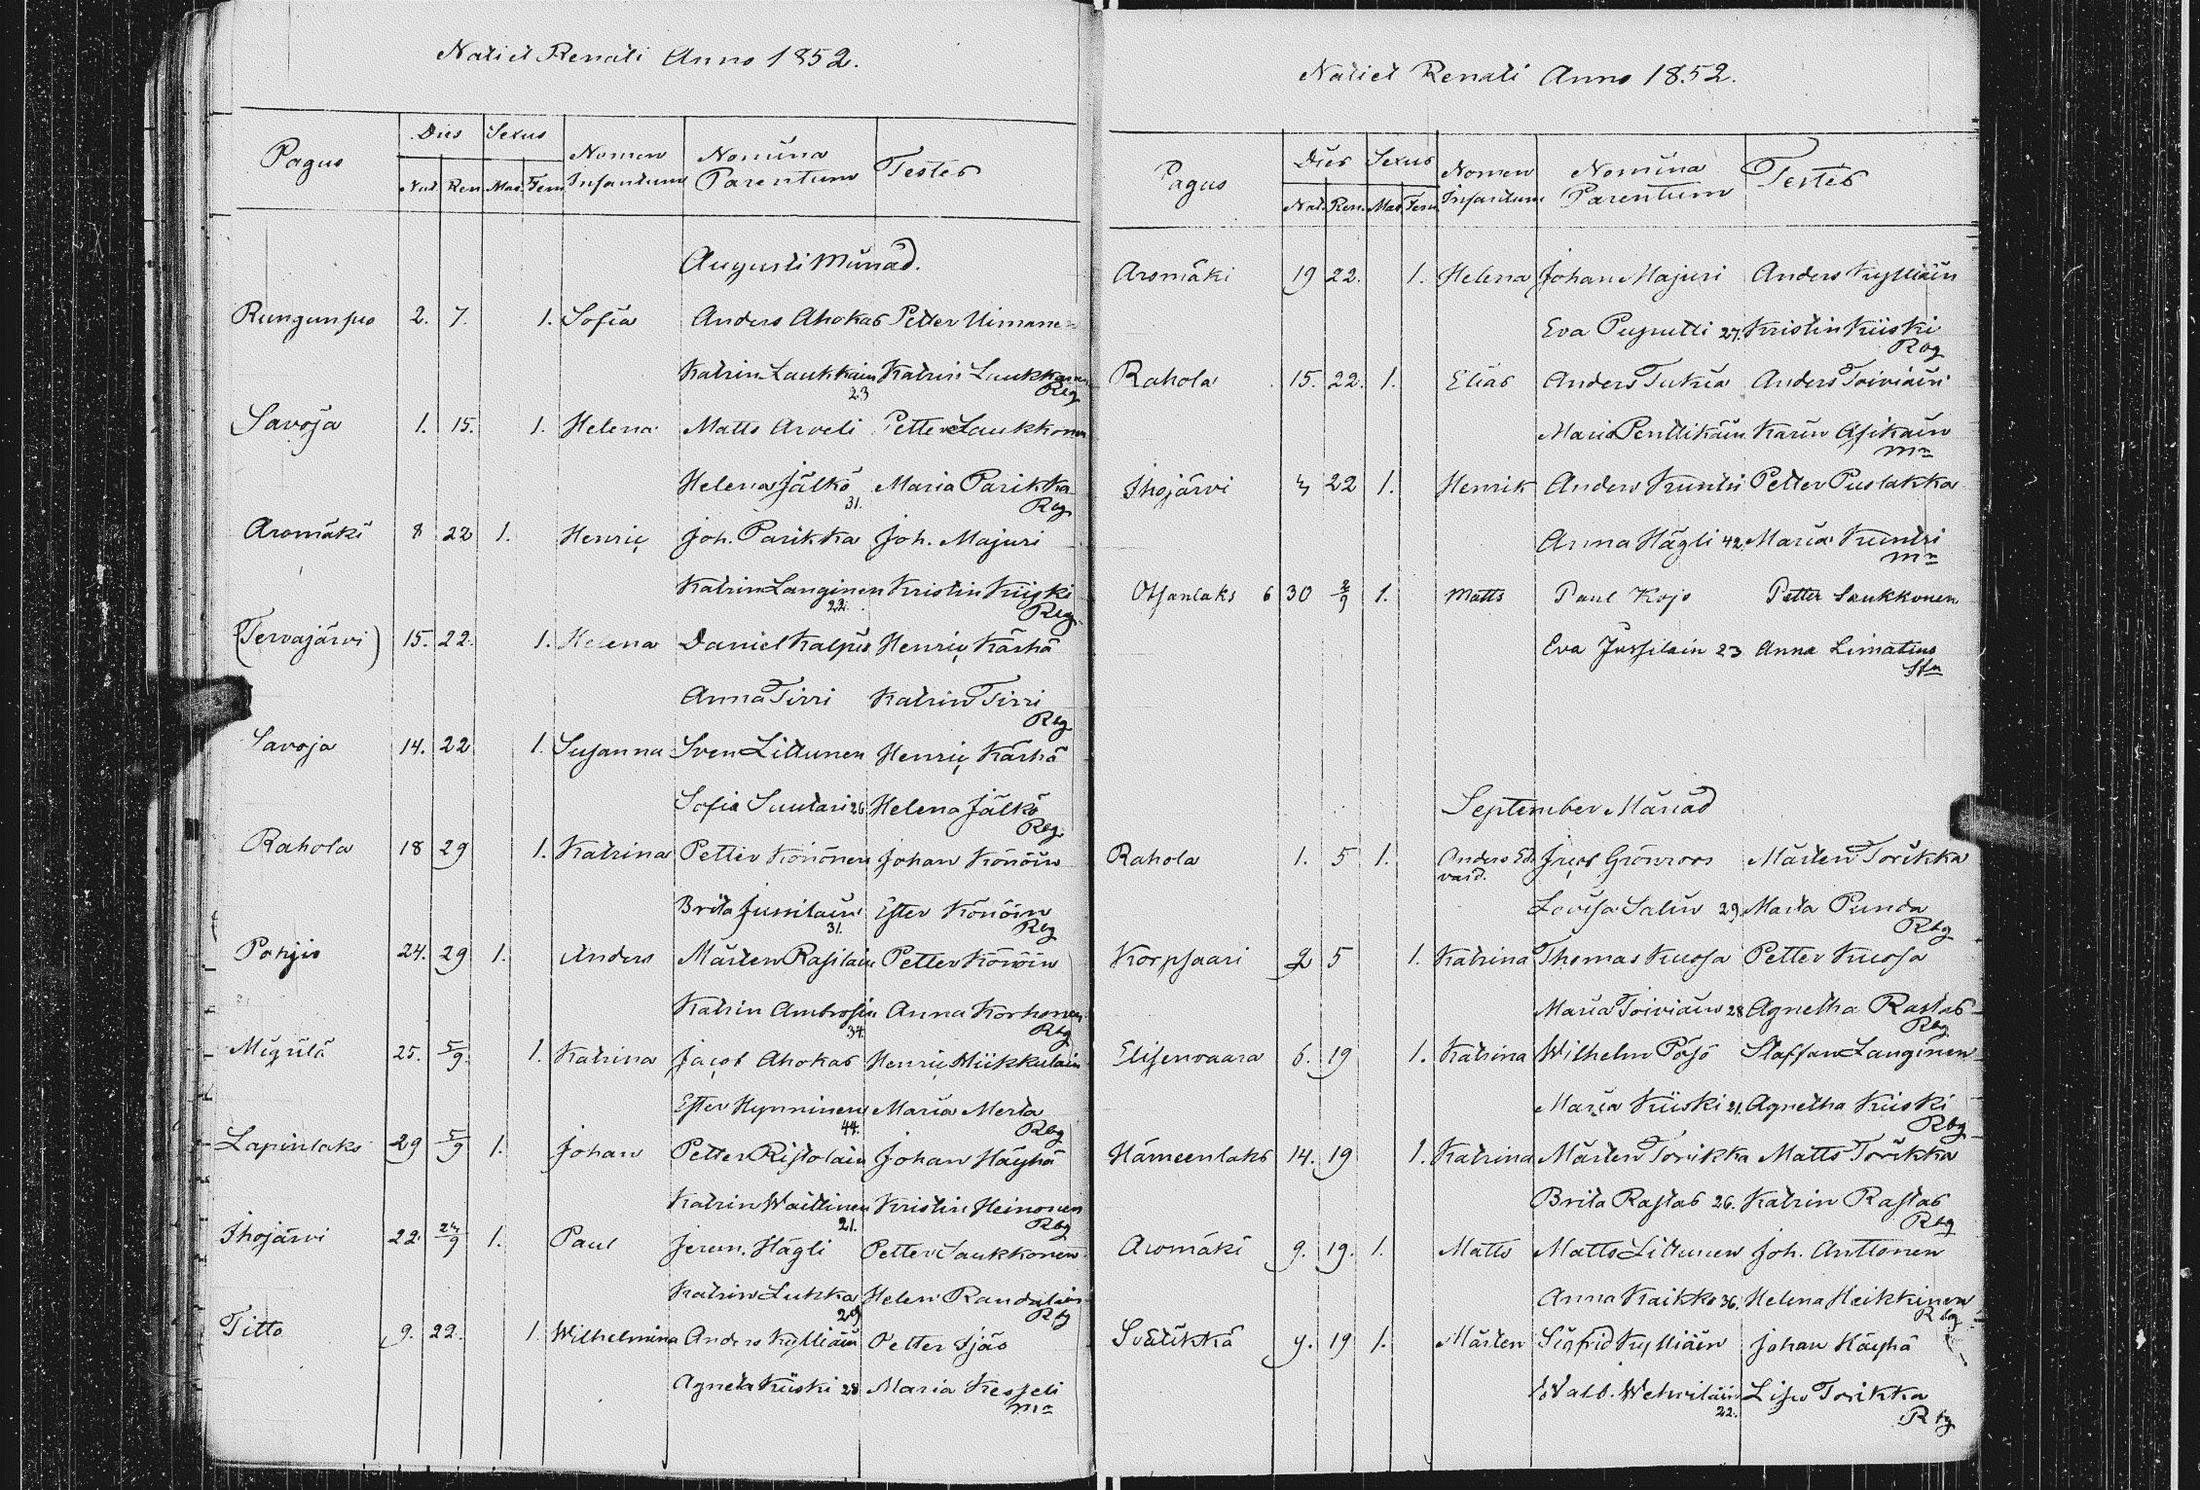 Natiet Renati Anno 1852.
Pagus Dies Sexus Nomen Infantum Nomina Parentum Testes
Nat. Ren. Mas. Fem.
Augusti Månad.
Rungunsuo 2. 7. 1. Sofia Anders Ahokas Petter Uimanen
Katrin Laukkain 23 Katrin Laukkanen Rbg
Savoja 1. 15. 1. Helena Matts Arveli Petter Laukkonen
Helena Jälkö 31. Maria Parikka Rbg
Aromäki 8 22 1. Henric Joh. Parikka Joh. Majuri
Katrin Langinen 22. Kristin Kiiski Rbg
(Tervajärvi) 15. 22. 1. Helena Daniel Kalpis Henric Kärhä
Anna Tirri Katrin Tirri Rbg
Savoja 14. 22 1. Susanna Sven Littunen Henric Kärhä
Sofia Suutari 26 Helena Jälkö Rbg
Rahola 18 29 1. Katrina Petter Könönen Johan Könöin
Brita Jussilain 31. Ester Könöin Rbg
Pohjis 24. 29 1. Anders Mårten Rasilain Petter Könöin
Katrin Ambrosin 34. Anna Korhonen Rbg
25. 5/9. 1. Katrina Jacob Ahokas Henric Miikkulain
Ester Hynninen 44. Maria Merta Rbg
Lapinlaks 29 5/9 1. Johan Petter Ristolain Johan Häyhä
Katrin Waittinen 21. Kristin Heinonen Rbg
Ihojärvi 22. 24/9 1. Paul Jerem. Hägli Petter Saukkonen
Katrin Lukka 29 Helen Randalain Rbg
Titto 9. 22. 1. Wilhelmina Anders Kylliäin Petter Sjäs
Agneta Kiiski 28 Maria Kesseli mn
Natiet Renati Anno 1852.
Pagus Dies Sexus Nomen Infantum Nomina Parentum Testes
Nat. Ren. Mas. Fem.
Aromäki 19 22. 1. Helena Johan Majuri Anders Kylliäin
Eva Pyputti 27. Kristin Kiiski Rbg
Rahola 15. 22. 1. Elias Anders Tukia Anders Toiviain
Maria Penttikäin Karin Asikain mn
Ihojärvi 4 22 1. Henrik Anders Kuntsi Petter Puslakka
Anna Hägli 42. Maria Kuntsi mn
Otsanlaks 6 30 2/9 1. Matts Paul Kojo Petter Saukkonen
Eva Jussilain 23 Anna Limatius
September Månad
Rahola 1. 5 1. Anders Edvard. Jacob Grönroos Mårten Torikka
Lovisa Salin 29. Marta Punda Rbg
Korpsaari 2 5 1. Katrina Thomas Kuosa Petter Kuosa
Maria Toiviain 28 Agnetha Rastas Rbg
Elisenvaara 6. 19 1. Katrina Wilhelm Pösö Staffan Langinen
Maria Kiiski 21. Agnetha Kiiski Rbg
Hämeenlaks 14. 19 1. Katrina Mårten Torikka Matts Torikka
Brita Rastas 26. Katrin Rastas Rbg
Aromäki 9. 19. 1. Matts Matts Littunen Joh. Anttonen
Anna Kaikko 36. Helena Heikkinen Rbg
Svätikkä 9. 19 1. Mårten Sigfrid Kylliäin Johan Häyhä
Walb. Wehviläin 22. Lisa Torikka Rbg